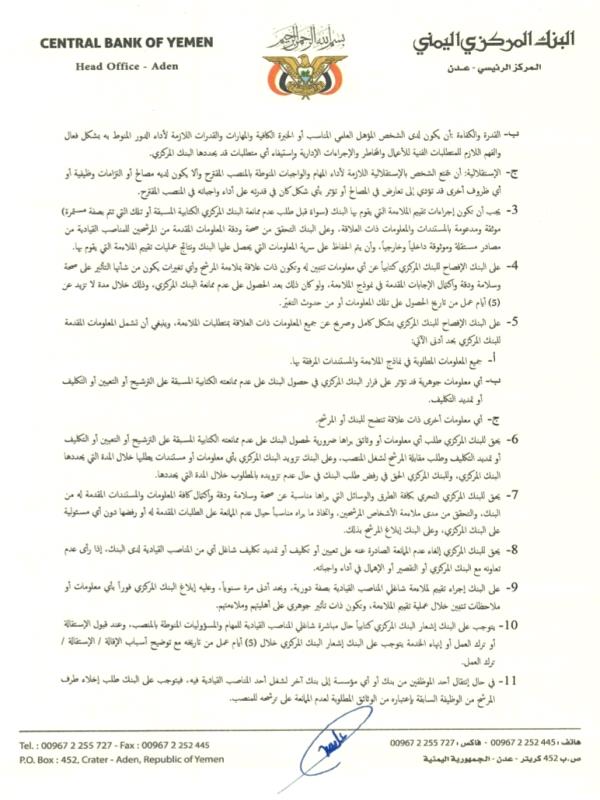 CENTRAL BANK OF YEMEN
Head Office - Aden
بسم الله الرحمن الرحيم
البنك المركزي اليمني
المركز الرئيسي - عدن
ب- القدرة والكفاءة :أن يكون لدى الشخص المؤهل العلمي المناسب أو الخبرة الكافية والمهارات والقدرات اللازمة لأداء الدور المنوط به بشكل فعال
والفهم اللازم للمتطلبات الفنية للأعمال والمخاطر والإجراءات الإدارية واستيفاء أي متطلبات قد يحددها البنك المركزي.
ج- الإستقلالية: أن يتمتع الشخص بالإستقلالية اللازمة لأداء المهام والواجبات المنوطة بالمنصب المقترح وألا يكون لديه مصالح أو التزامات وظيفية أو
أي ظروف أخرى قد تؤدي إلى تعارض في المصالح أو تؤثر بأي شكل كان في قدرته على أداء واجباته في المنصب المقترح.
3- يجب أن تكون إجراءات تقييم الملاءمة التي يقوم بها البنك (سواءً قبل طلب عدم ممانعة البنك المركزي الكتابية المسبقة أو تلك التي تتم بصفة مستمرة)
موثقة ومدعومة بالمستندات والمعلومات ذات العلاقة، وعلى البنك التحقق من صحة ودقة المعلومات المقدمة من المرشحين للمناصب القيادية من
مصادر مستقلة وموثوقة داخلياً وخارجياً، وأن يتم الحفاظ على سرية المعلومات التي يحصل عليها البنك ونتائج عمليات تقييم الملاءمة التي يقوم بها.
4- على البنك الإفصاح للبنك المركزي كتابياً عن أي معلومات تتبين له وتكون ذات علاقة بملاءمة المرشح وأي تغيرات يكون من شأنها التأثير على صحة
وسلامة ودقة وأكتمال الإجابات المقدمة في نموذج الملاءمة، ولو كان ذلك بعد الحصول على عدم ممانعة البنك المركزي، وذلك خلال مدة لا تزيد عن
(5) أيام عمل من تاريخ الحصول على تلك المعلومات أو من حدوث التغيّر.
5- على البنك الإفصاح للبنك المركزي بشكل كامل وصريح عن جميع المعلومات ذات العلاقة بمتطلبات الملاءمة، وينبغي أن تشمل المعلومات المقدمة
للبنك المركزي بحد أدنى الآتي:
أ- جميع المعلومات المطلوبة في نماذج الملاءمة والمستندات المرفقة بها.
ب- أي معلومات جوهرية قد تؤثر على قرار البنك المركزي في حصول البنك على عدم ممانعته الكتابية المسبقة على الترشيح أو التعيين أو التكليف
أو تمديد التكليف.
ج- أي معلومات أخرى ذات علاقة تتضح للبنك أو المرشح.
6- يحق للبنك المركزي طلب أي معلومات أو وثائق يراها ضرورية لحصول البنك على عدم ممانعته الكتابية المسبقة على الترشيح أو التعيين أو التكليف
أو تمديد التكليف وطلب مقابلة المرشح لشغل المنصب، وعلى البنك تزويد البنك المركزي بأي معلومات أو مستندات يطلبها خلال المدة التي يحددها
البنك المركزي، وللبنك المركزي الحق في رفض طلب البنك في حال عدم تزويده بالمطلوب خلال المدة التي يحددها.
7- يحق للبنك المركزي التحري بكافة الطرق والوسائل التي يراها مناسبة عن صحة وسلامة ودقة وأكتمال كافة المعلومات والمستندات المقدمة له من
البنك، والتحقق من مدى ملاءمة الأشخاص المرشحين، واتخاذ ما يراه مناسباً حيال عدم الممانعة على الطلبات المقدمة له أو رفضها دون أي مسئولية
على البنك المركزي، وعلى البنك إبلاغ المرشح بذلك.
8- يحق للبنك المركزي إلغاء عدم الممانعة الصادرة عنه على تعيين أو تكليف أو تمديد تكليف شاغل أي من المناصب القيادية لدى البنك، إذا رأى عدم
تعاونه مع البنك المركزي أو التقصير أو الإهمال في أداء واجباته.
9- على البنك إجراء تقييم لملاءمة شاغلي المناصب القيادية بصفة دورية، وبحد أدنى مرة سنوياً، وعليه إبلاغ البنك المركزي فوراً بأي معلومات أو
ملاحظات تتبين خلال عملية تقييم الملاءمة، وتكون ذات تأثير جوهري على أهليتهم وملاءمتهم.
10- يتوجب على البنك إشعار البنك المركزي كتابياً حال مباشرة شاغلي المناصب القيادية للمهام والمسؤوليات المنوطة بالمنصب، وعند قبول الإستقالة
أو ترك العمل أو إنهاء الخدمة يتوجب على البنك إشعار البنك المركزي خلال (5) أيام عمل من تاريخه مع توضيح أسباب الإقالة / الإستقالة /
ترك العمل.
11- في حال إنتقال أحد الموظفين من بنك أو أي مؤسسة إلى بنك آخر لشغل أحد المناصب القيادية فيه، فيتوجب على البنك طلب إخلاء طرف
المرشح من الوظيفة السابقة بإعتباره من الوثائق المطلوبة لعدم الممانعة على ترشحه للمنصب.
Tel. : 00967 2 255 727 - Fax : 00967 2 252 445
P.O. Box : 452, Crater - Aden, Republic of Yemen
هاتف : 445 252 2 00967 - فاكس : 727 255 2 00967
ص.ب 452 كريتر - عدن - الجمهورية اليمنية